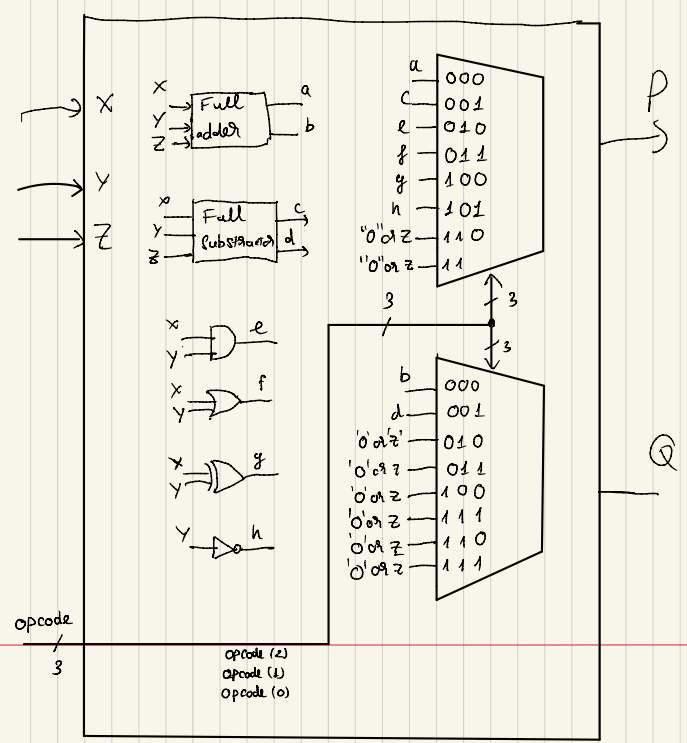 X
Y
Z
X
Y
Z
Full
adder
a
b
X
Y
Z
Full
Substractor
c
d
X
Y
e
X
Y
f
X
Y
g
Y
h
opcode
3
opcode (2)
opcode (1)
opcode (0)
3
3
3
a 000
c 001
e 010
f 011
g 100
h 101
"0" or Z 110
"0" or Z 11
P
b 000
d 001
'0' or 'Z' 010
'0' or Z 011
'0' or Z 100
'0' or Z 111
'0' or Z 110
'0' or Z 111
Q